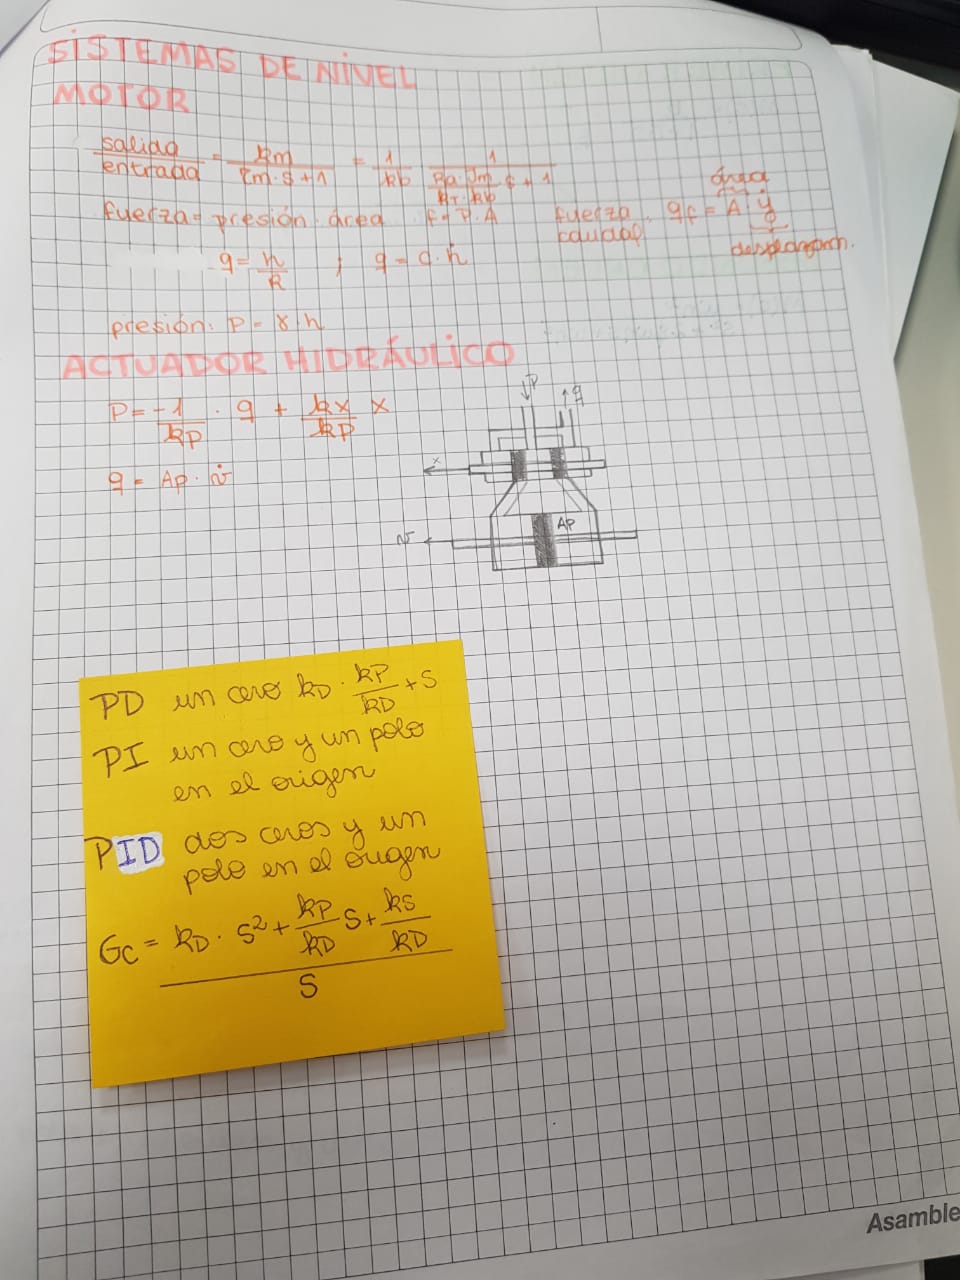 SISTEMAS DE NIVEL
MOTOR
salida/entrada = km/(τm·s+1) = 1/kb · 1/((Ra·Jm/kT·kb) s + 1)
fuerza = presión · área F = P·A
fuerza caudal qf = A · ẏ
área
desplazam.
q = h/R ; q = a·ḣ
presión: P = γ·h
ACTUADOR HIDRÁULICO
P = -1/kp · q + kx/kp x
q = Ap · v̇
P
q
x
AP
v
PD un cero kD · kP/kD + s
PI un cero y un polo
en el origen
PID dos ceros y un
polo en el origen
Gc = kD · s² + kP/kD s + ks/kD
s
Asamble